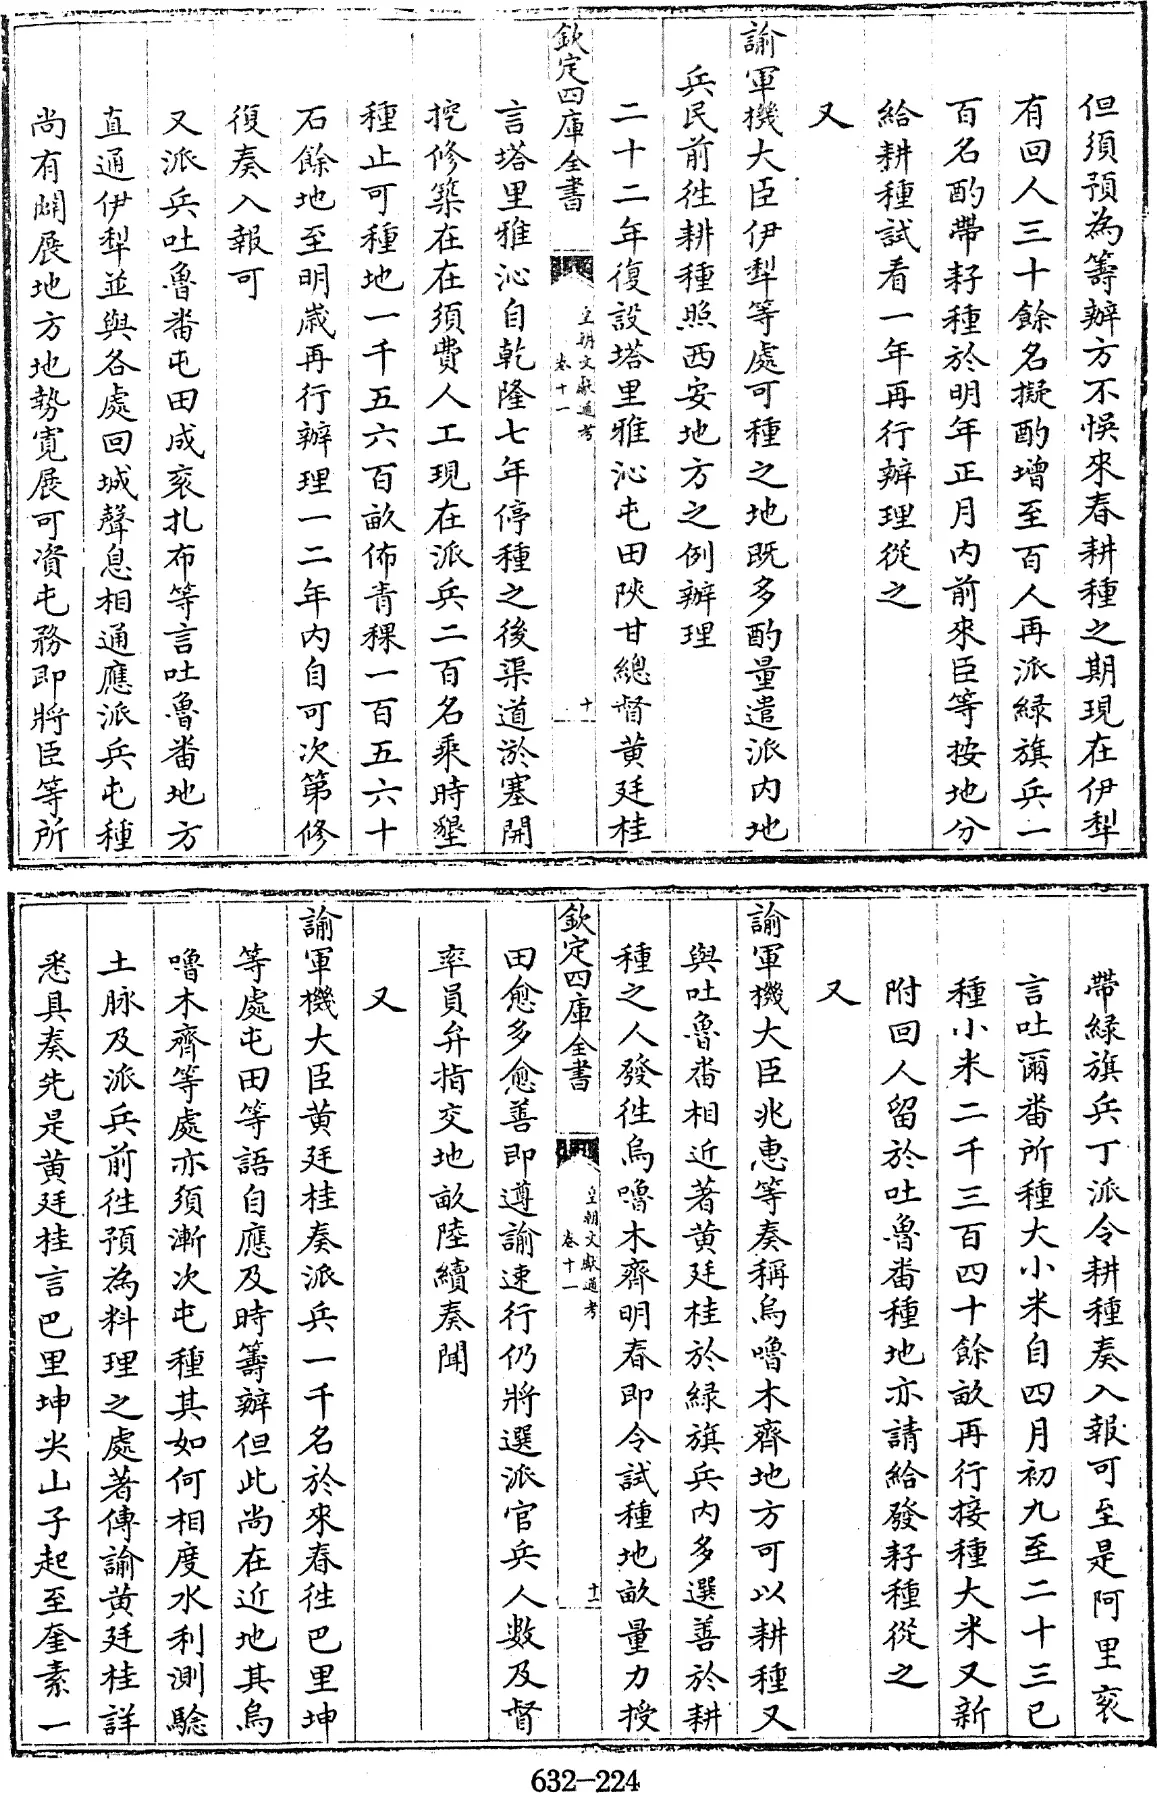 但須預為籌辦方不悞來春耕種之期現在伊犂
有回人三十餘名擬酌增至百人再派緑旗兵一
百名酌帶耔種於明年正月内前來臣等按地分
給耕種試看一年再行辦理從之
又
諭軍機大臣伊犂等處可種之地既多酌量遣派内地
兵民前徃耕種照西安地方之例辦理
二十二年復設塔里雅沁屯田陜甘總督黄廷桂
欽定四庫全書
皇朝文獻通考
卷十一
十
言塔里雅沁自乾隆七年停種之後渠道淤塞開
挖修築在在須費人工現在派兵二百名乘時墾
種止可種地一千五六百畝佈青稞一百五六十
石餘地至明歲再行辦理一二年内自可次第修
復奏入報可
又派兵吐魯畨屯田成衮扎布等言吐魯畨地方
直通伊犂並與各處回城聲息相通應派兵屯種
尚有闢展地方地勢寛展可資屯務即將臣等所
帶緑旗兵丁派令耕種奏入報可至是阿里衮
言吐爾畨所種大小米自四月初九至二十三已
種小米二千三百四十餘畝再行接種大米又新
附回人留於吐魯畨種地亦請給發耔種從之
又
諭軍機大臣兆惠等奏稱烏嚕木齊地方可以耕種又
與吐魯畨相近著黄廷桂於緑旗兵内多選善於耕
種之人發徃烏嚕木齊明春即令試種地畝量力授
欽定四庫全書
皇朝文獻通考
卷十一
十一
田愈多愈善即遵諭速行仍將選派官兵人數及督
率員弁指交地畝陸續奏聞
又
諭軍機大臣黄廷桂奏派兵一千名於來春徃巴里坤
等處屯田等語自應及時籌辦但此尚在近地其烏
嚕木齊等處亦須漸次屯種其如何相度水利測驗
土脉及派兵前徃預為料理之處著傳諭黄廷桂詳
悉具奏先是黄廷桂言巴里坤尖山子起至奎素一
632-224